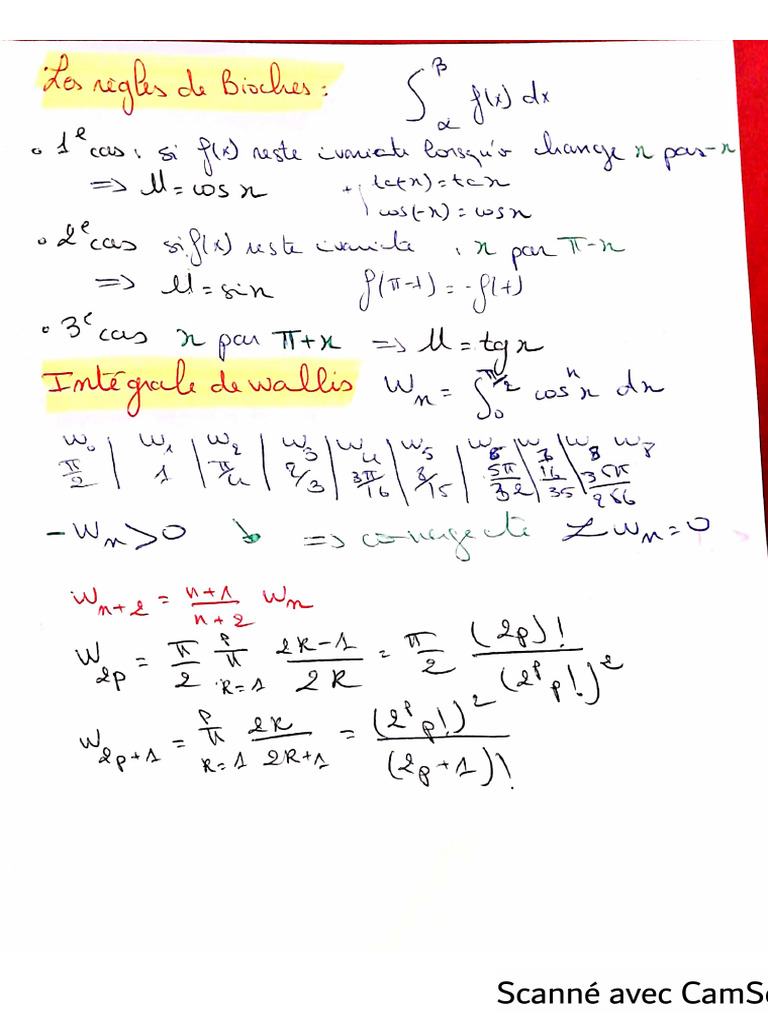 Les règles de Bioches : ∫_α^β f(x) dx
• 1e cas : si f(x) reste invariate lorsqu'o change x par -x
=> U = cos x
cos(-x) = cos x
• 2e cas si f(x) reste ivariate , x par π-x
=> U = sin x f(π-t) = -f(t)
• 3e cas x par π+x => U = tg x
Intégrale de wallis W_n = ∫_0^{π/2} cos^n x dx
W_0 | W_1 | W_2 | W_3 | W_4 | W_5 | W_6 | W_7 | W_8
π/2 | 1 | π/4 | 2/3 | 3π/16 | 8/15 | 5π/32 | 16/35 | 35π/256
- W_n > 0 => convergente W_n = 0
W_{n+2} = (n+1)/(n+2) W_n
W_{2p} = π/2 π_{k=1}^{p} (2k-1)/(2k) = π/2 (2p)!/(2^p p!)^2
W_{2p+1} = π_{k=1}^{p} 2k/(2k+1) = (2^p p!)^2/(2p+1)!
Scanné avec CamSc